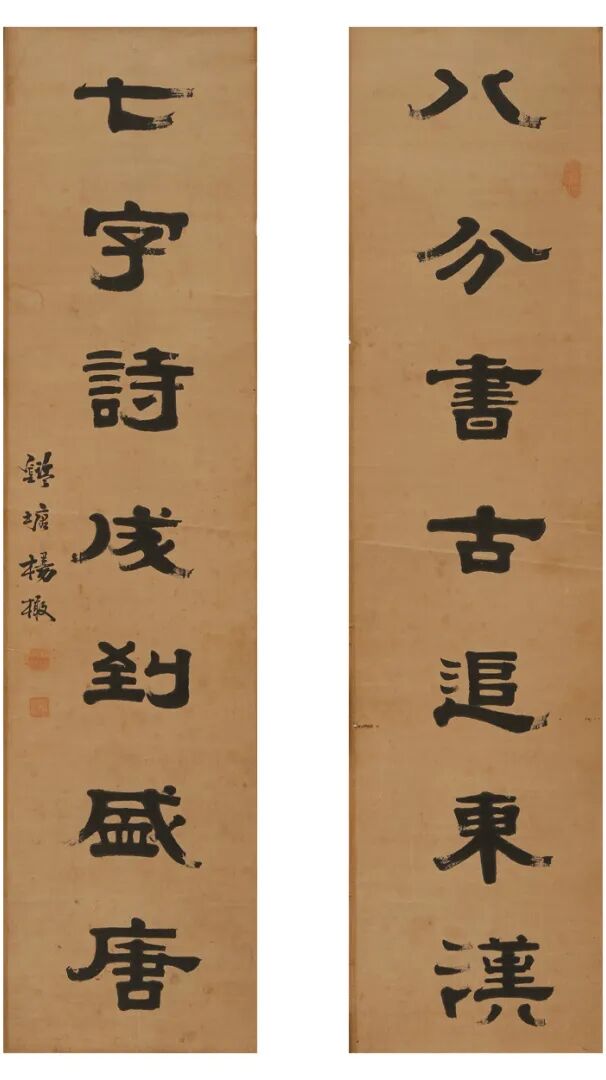 八分書古追東漢
七字詩成到盛唐
塘楊